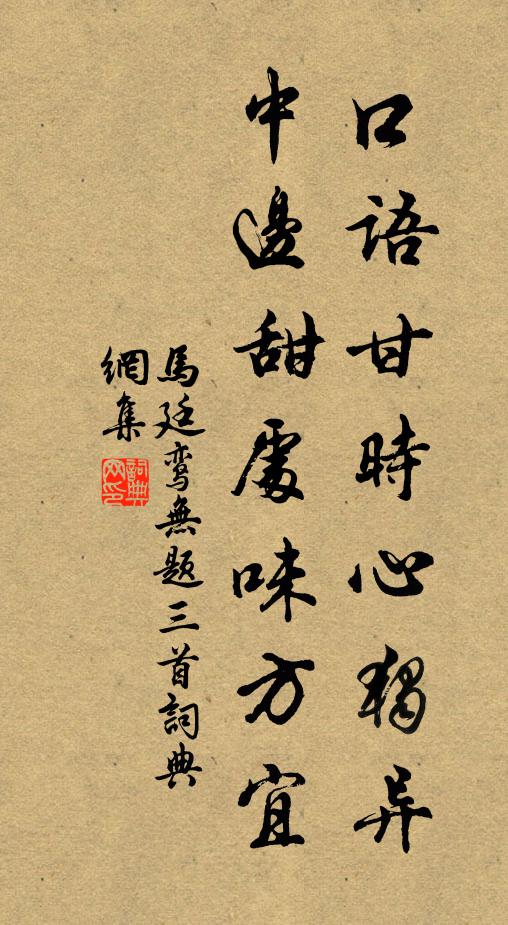 口語甘時心獨异
中邊甜處味方宜
馬廷鸞無题三首詞典
網集
詞典
网印